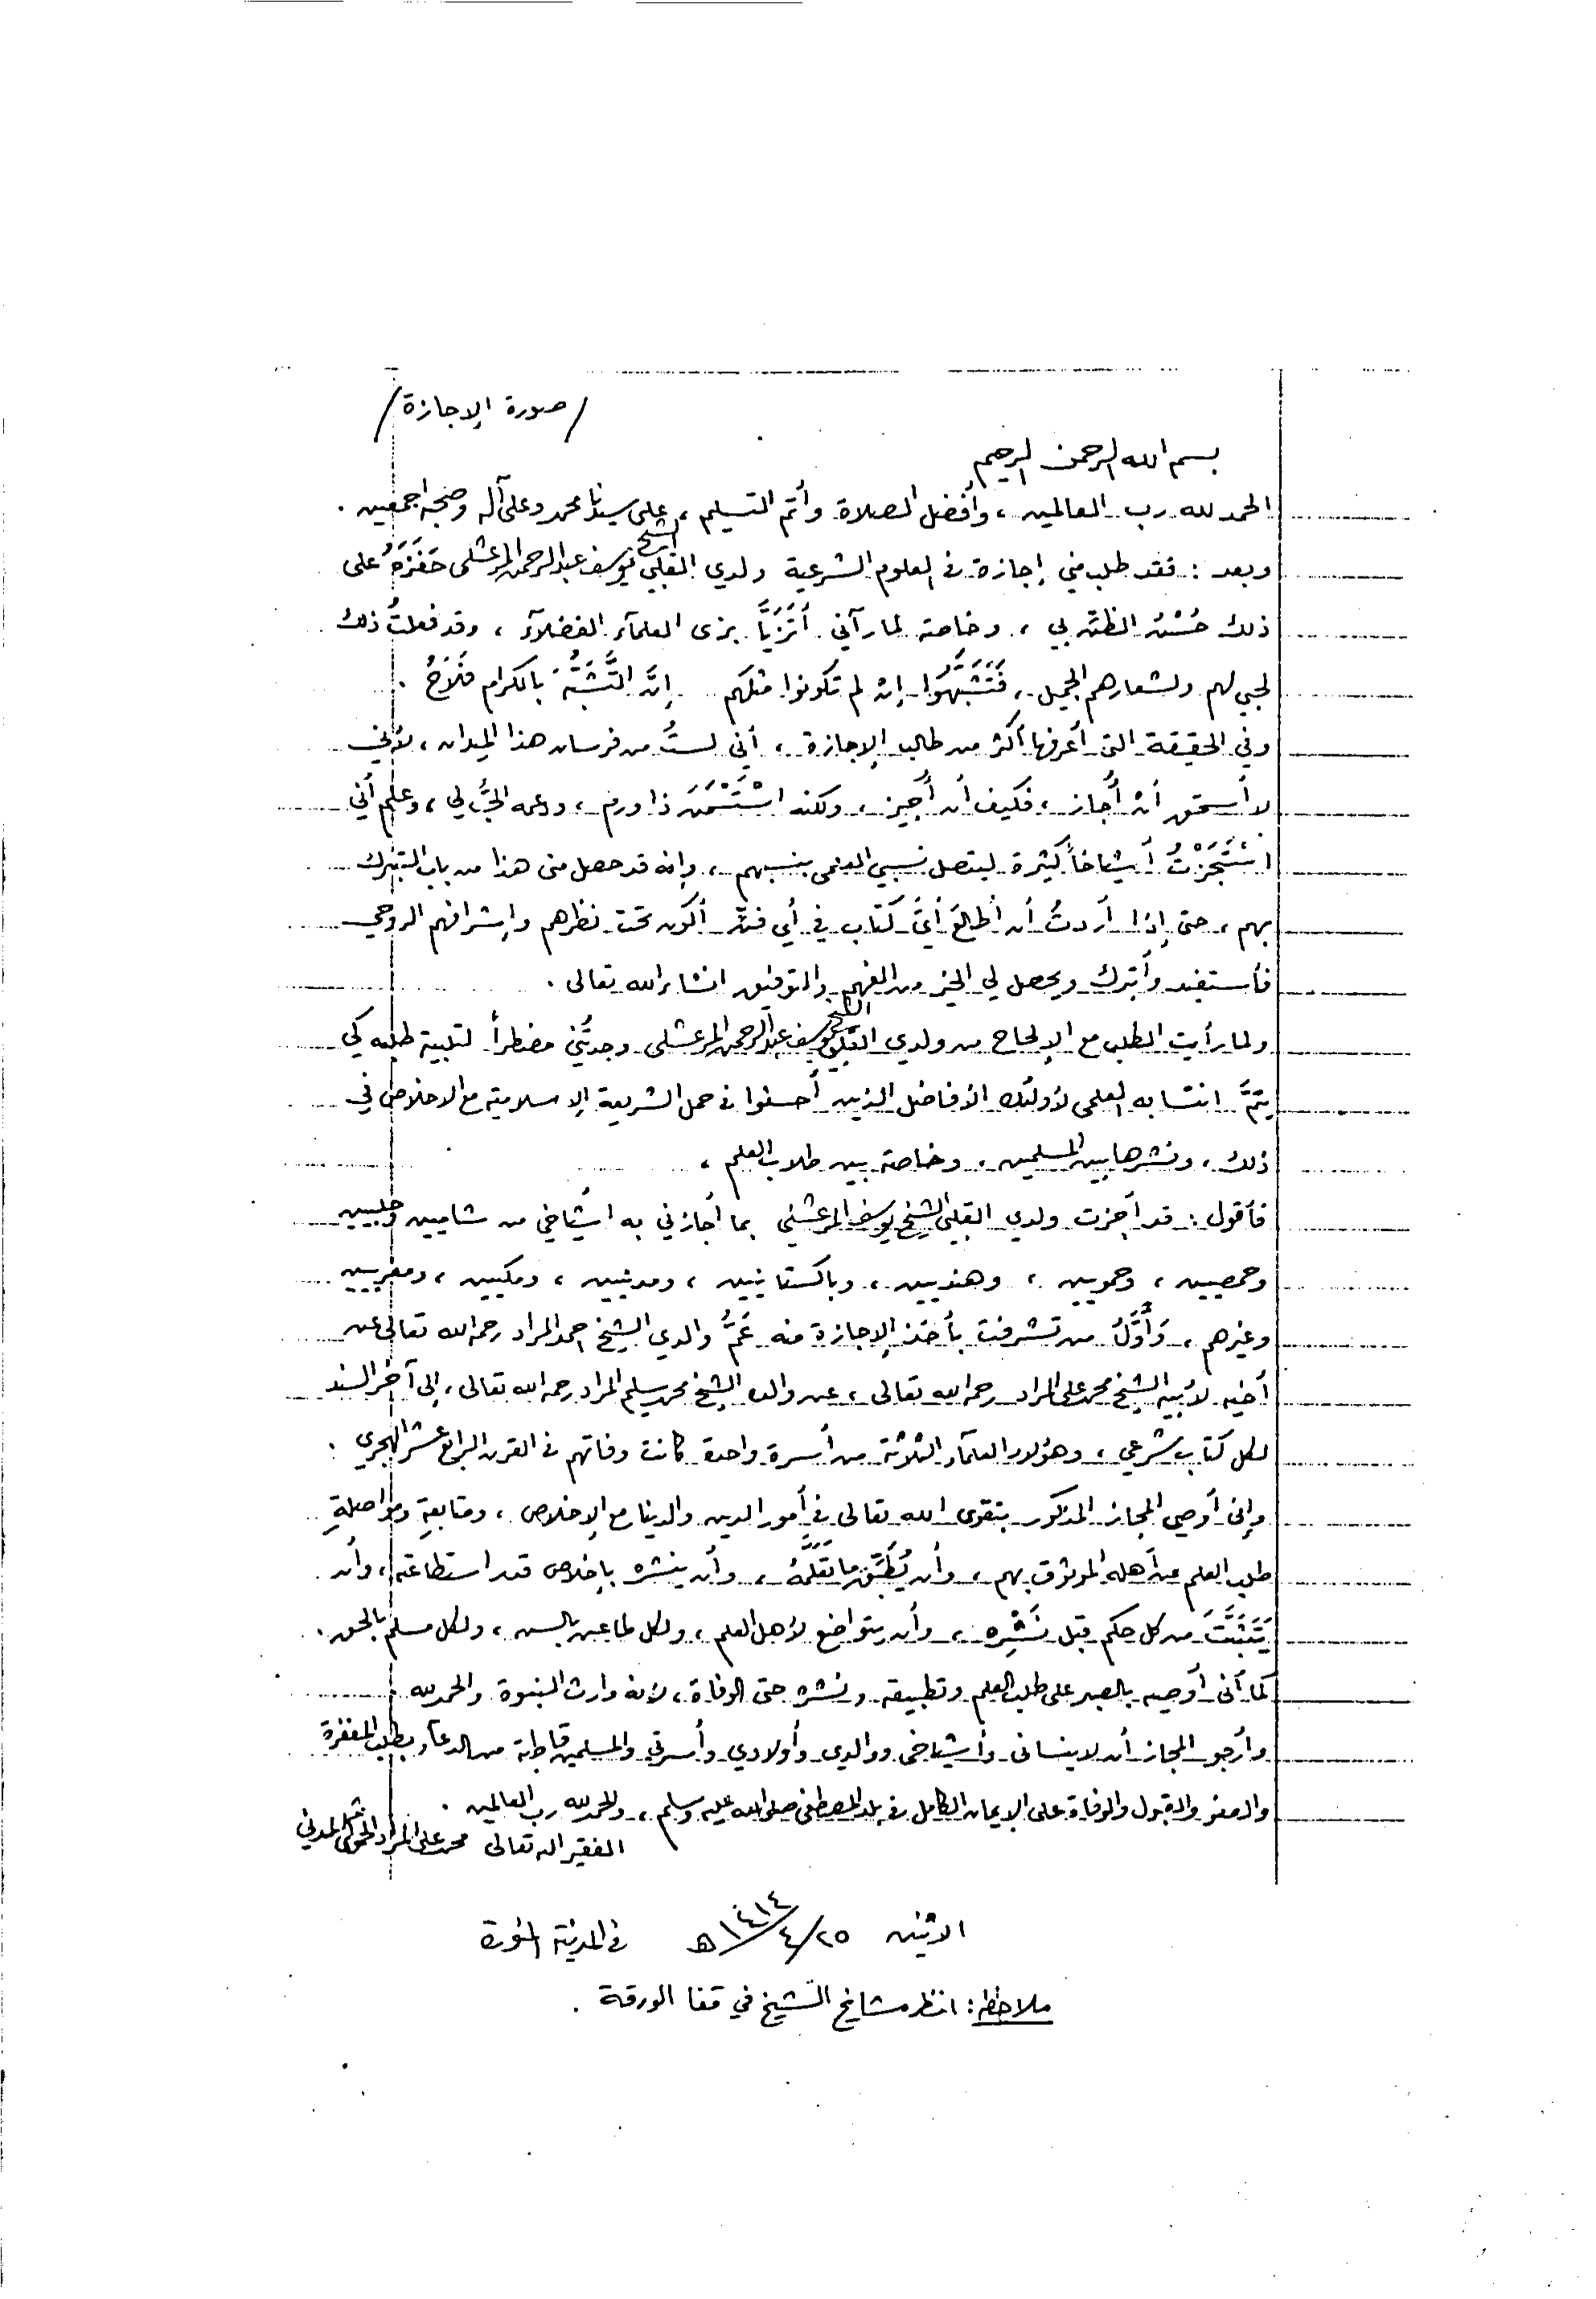 /صورة الإجازة/
بسم الله الرحمن الرحيم
الحمد لله رب العالمين ، وأفضل الصلاة وأتم التسليم ، على سيدنا محمد وعلى آله وصحبه أجمعين .
وبعد : فقد طلب مني إجازة في العلوم الشرعية ولدي القلبي الشيخ يوسف عبد الرحمن المرعشلي حَفَزَهُ على
ذلك حُسْنُ الظن بي ، وخاصة لما رآني أَتَزَيَّا بزي العلمآء الفضلآء ، وقد فعلتُ ذلك
لحبي لهم ولشعارهم الجميل ، فَتَشَبَّهُوا إن لم تكونوا مثلهم إنَّ التَّشَبُّهَ بالكرام فَلَاحُ .
وفي الحقيقة التي أعرفها أكثر من طالب الإجازة ، أني لستُ من فرسان هذا الميدان ، لأني
لا أستحق أنْ أُجاز ، فكيف أن أُجيز ، ولكنه اسْتَسْمَنَ ذا ورم ، ودعه الحبُّ لي ، وعلم أني
اسْتَجَزْتُ أشياخاً كثيرة ليتصل نسبي العلمي بنسبهم ، وإنه قد حصل مني هذا من باب التبرك
بهم ، حتى إذا أردتُ أن أطالعَ أيَّ كتاب في أي فنٍّ أكون تحت نظرهم وإشرافهم الروحي
فأستفيد وأتبرك ويحصل لي الخير من الفهم والتوفيق انشاء الله تعالى .
ولما رأيت الطلب مع الإلحاح من ولدي القلبي الشيخ يوسف عبد الرحمن المرعشلي وجدتُني مضطراً لتلبية طلبه كي
يتمَّ انتسابه العلمي لأولئك الأفاضل الذين أحسنوا في حمل الشريعة الإسلامية مع الاخلاص في
ذلك ، ونشرها بين المسلمين ، وخاصة بين طلاب العلم ،
فأقول : قد أجزت ولدي القلبي الشيخ يوسف المرعشلي بما أجازني به أشياخي من شاميين وحلبيين
وحمصيين ، وحمويين ، وهنديين ، وباكستانيين ، ومدنيين ، ومكيين ، ومغربيين
وغيرهم ، وَأَوَّلُ من تشرفت بأخذ الإجازة منه عَمُّ والدي الشيخ احمد المراد رحمه الله تعالى عن
أخيه لأبيه الشيخ محمد علي المراد رحمه الله تعالى ، عن والده الشيخ محمد سليم المراد رحمه الله تعالى ، إلى آخر السند
لكل كتاب شرعي ، وهؤلاء العلمآء الثلاثة من أسرة واحدة كانت وفاتهم في القرن الرابع عشر الهجري .
وإني أوصي المجاز المذكور بتقوى الله تعالى في أمور الدين والدنيا مع الإخلاص ، ومتابعةِ ومواصلةِ
طلب العلم عن أهله الموثوق بهم ، وأن يُطَبِّقَ ما تعَلَّمَهُ ، وأن ينشره بإخلاص قدر استطاعته ، وأن
يَتَثَبَّتَ من كل حكم قبل نَشْرِه ، وأن يتواضع لأهل العلم ، ولكل طاعن بالسن ، ولكل مسلم بالحق .
كما أني أوصيه بالصبر على طلب العلم وتطبيقه ونشره حتى الوفاة ، لأنه وارث النبوة والحمد لله
وأرجو المجاز أن لا ينساني وأشياخي ووالدي وأولادي وأسرتي والمسلمين قاطبة من الدعآء بطلب المغفرة
والعفو والقبول والوفاة على الإيمان الكامل في بلد المصطفى صلى الله عليه وسلم ، والحمد لله رب العالمين .
الفقير اله تعالى محمد علي المراد الحموي ثم المدني
الاثنين ٢٥/٤/١٤١٤ هـ في المدينة المنورة
ملاحظة : انظر مشايخ الشيخ في قفا الورقة .